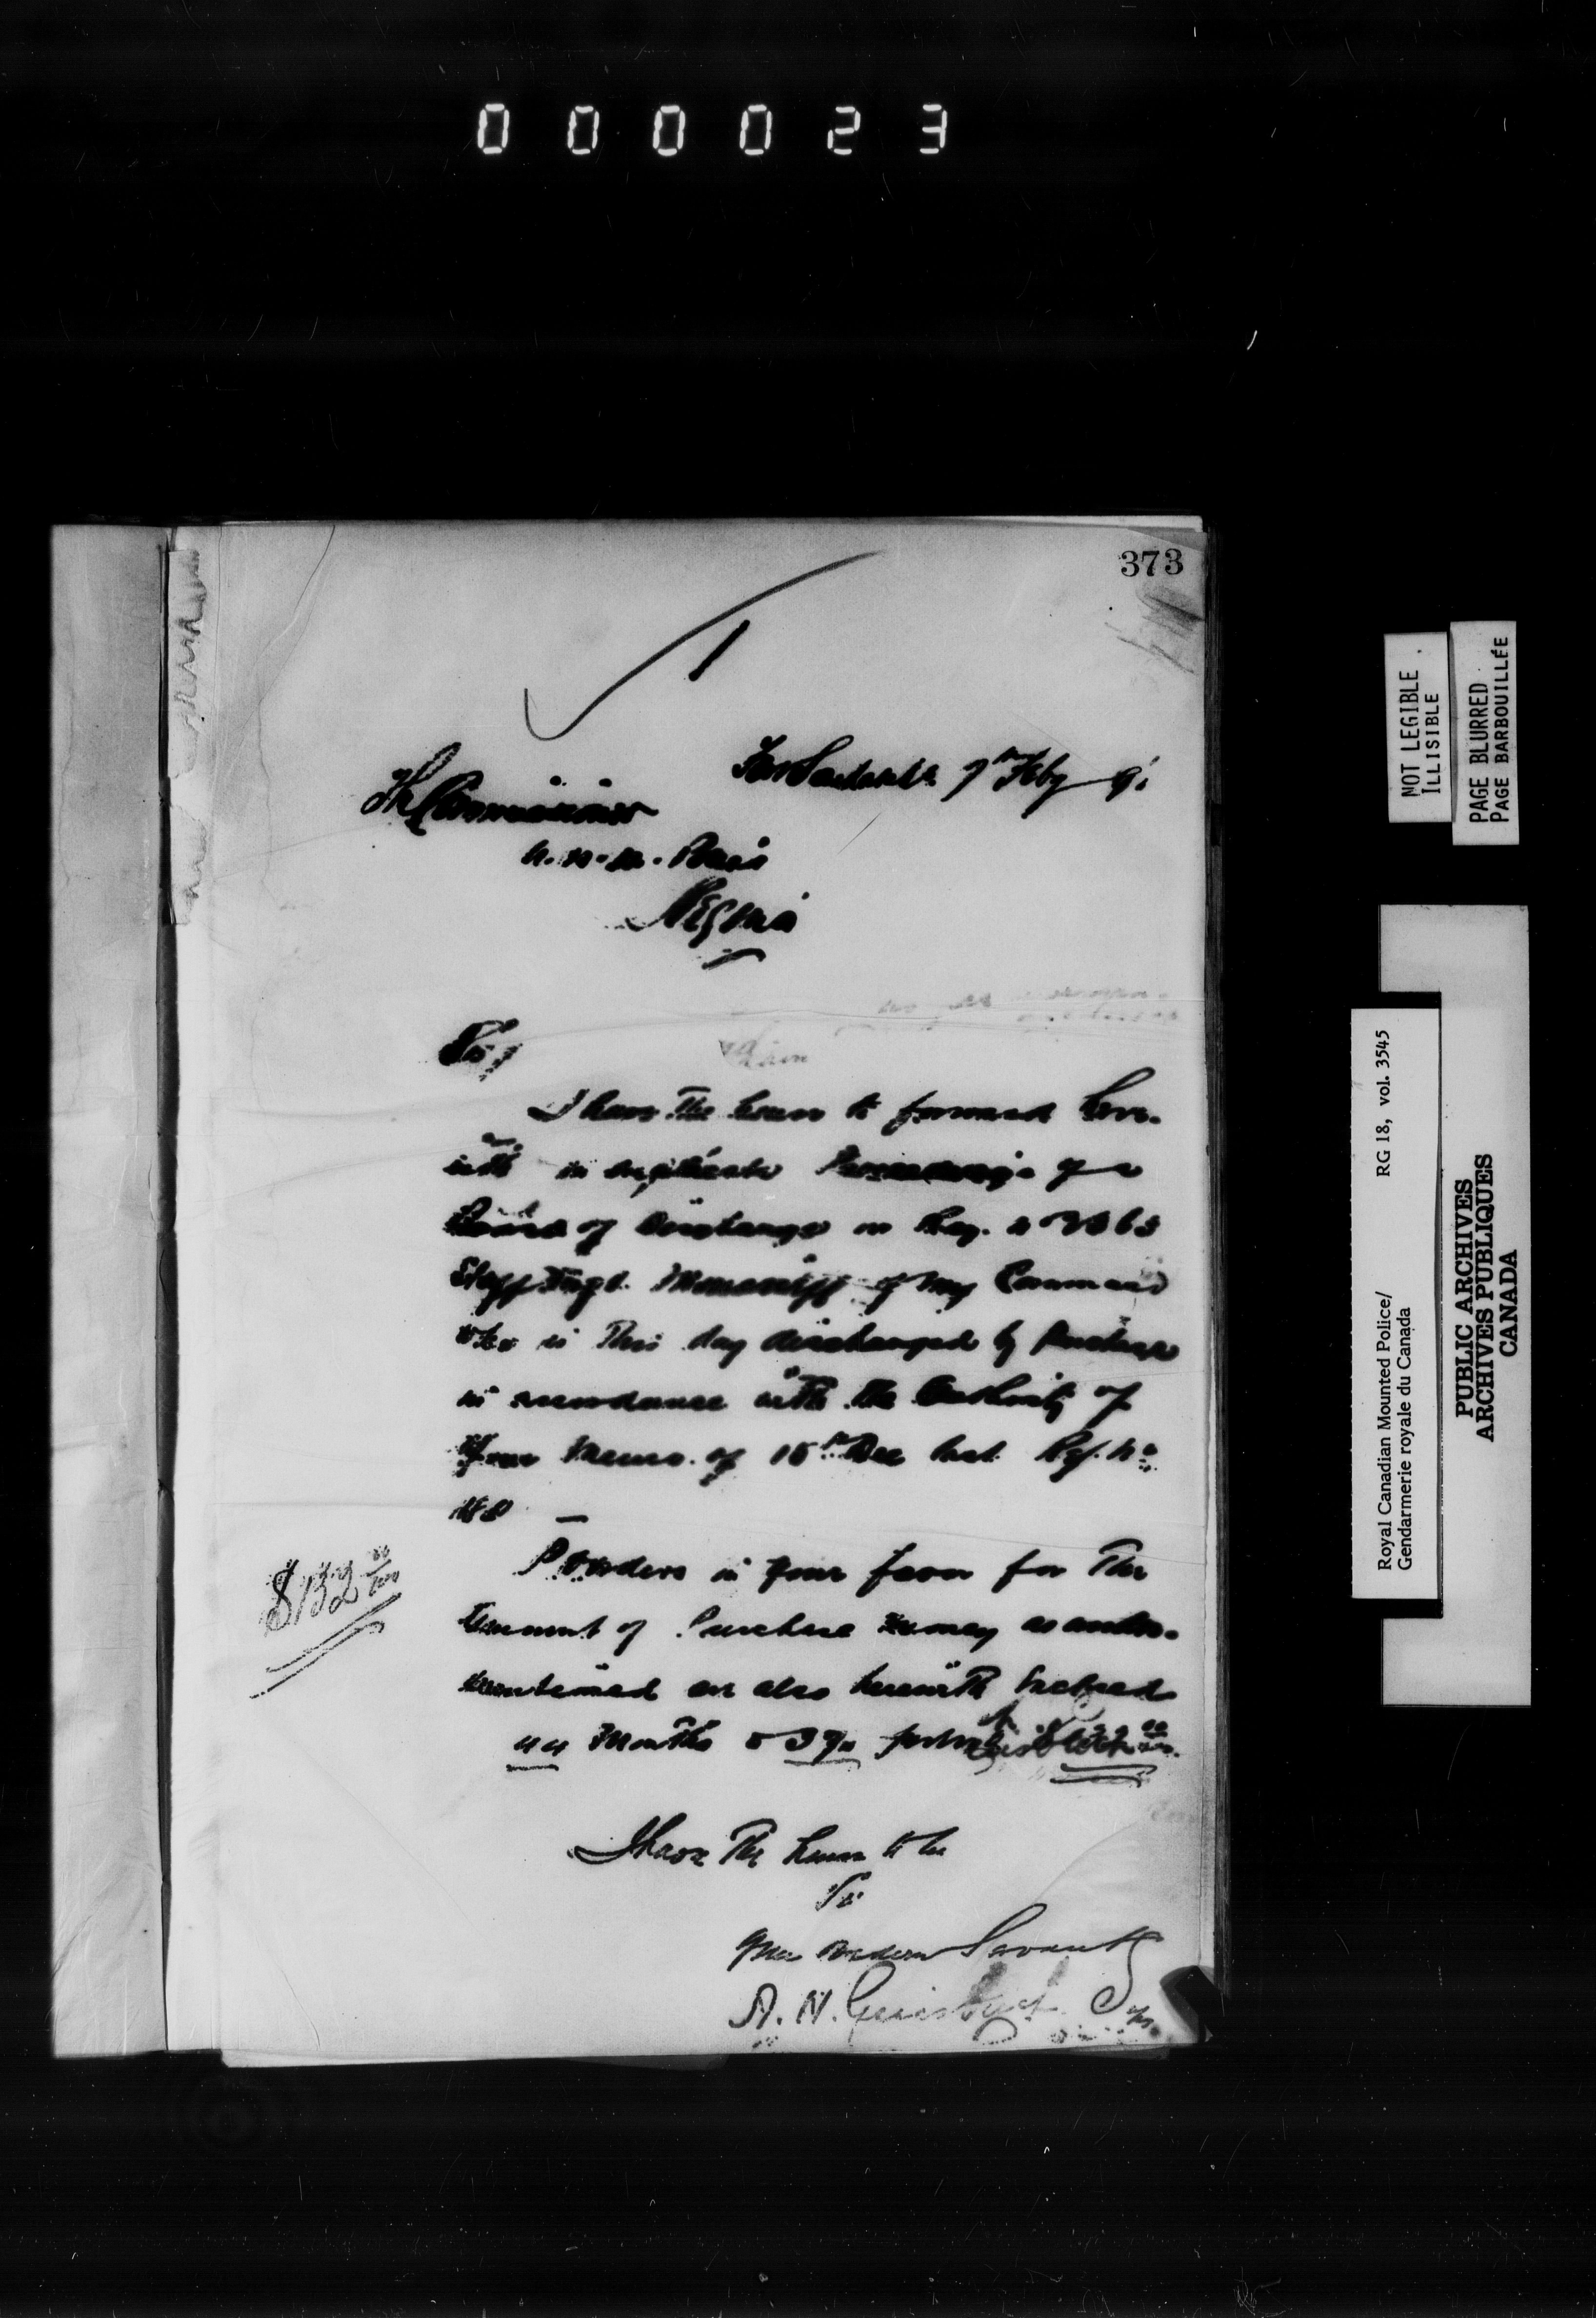 000023
373
1
Fort Saskatch. 7th Feby 91
The Commissioner
N. W. M. Police
Regina
Sir,
I have the honor to forward here-
with in triplicate Proceedings of a
Board of Discharge on Reg. No
Staff Sergt. of my Command
who is this day discharged by purchase
in accordance with the authority of
your Memo. of 15th Dec last Ref. No
P.O. orders in your favor for the
amount of Purchase money as under-
mentioned are also herewith enclosed
44 Months @ 3 $132 00/100
$132 00/100
I have the honor to be
Sir
Your obedient Servant
A. H. Griesbach
NOT LEGIBLE
ILLISIBLE
PAGE BLURRED
PAGE BARBOUILLÉE
Royal Canadian Mounted Police/ RG 18, vol. 3545
Gendarmerie royale du Canada
PUBLIC ARCHIVES
ARCHIVES PUBLIQUES
CANADA